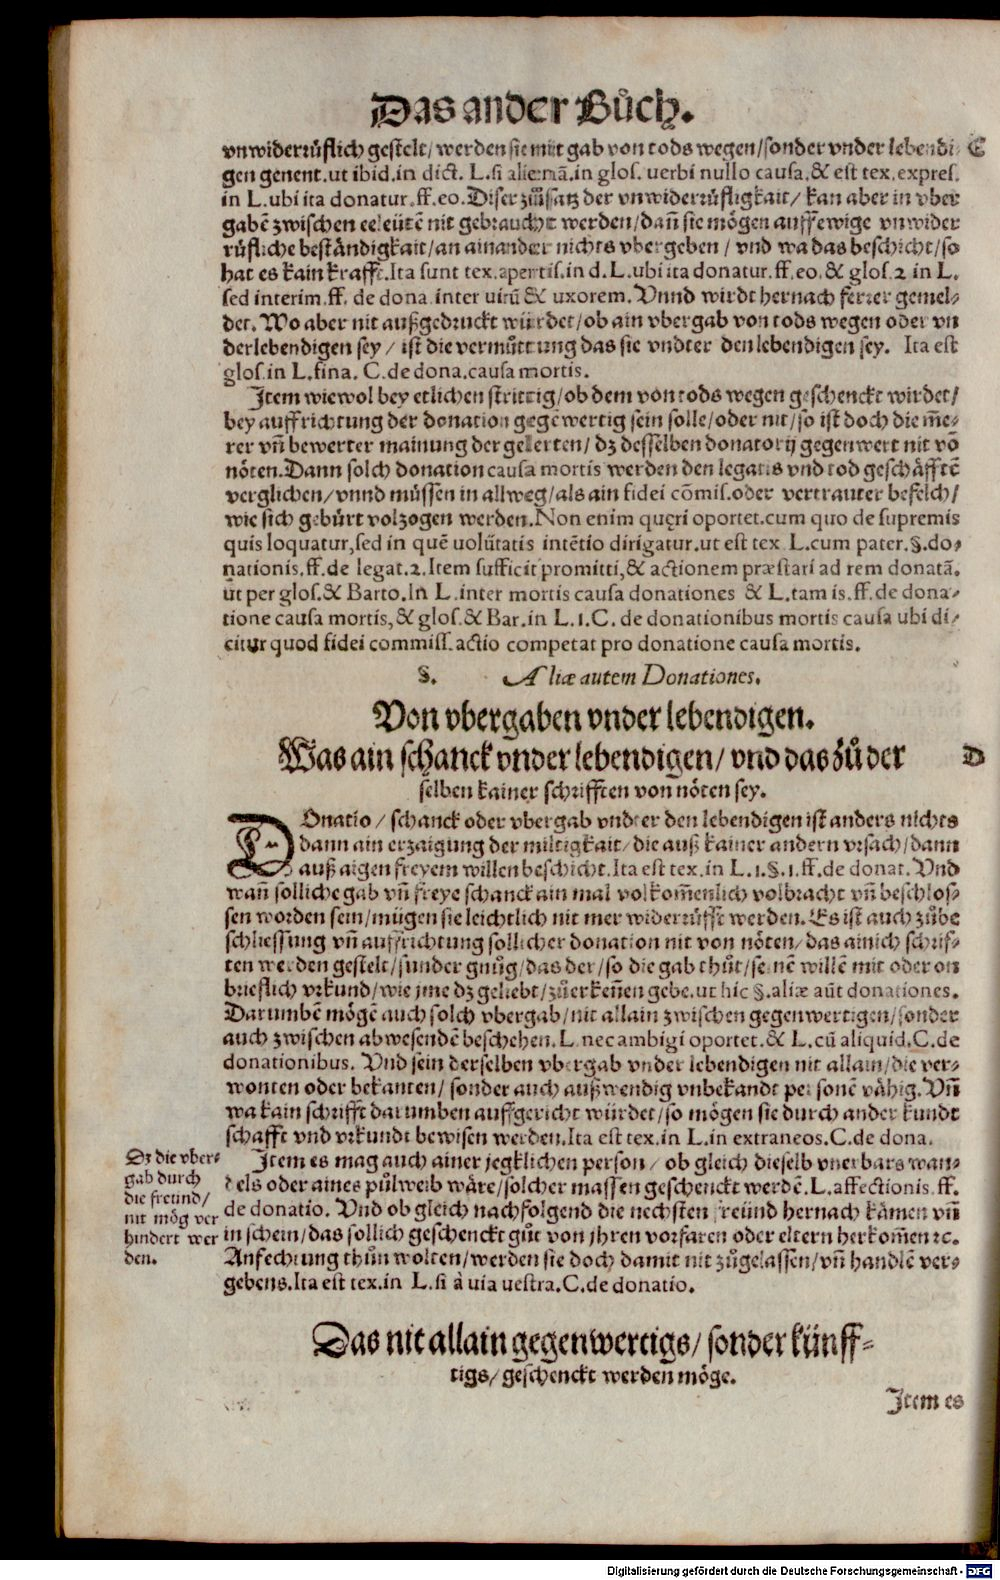 Das ander Bůch.
vnwiderrůflich gestelt/ werden sie mit gab von tods wegen/sonder vnder lebendi- C
gen genent.ut ibid.in dict. L.si alienã.in glos. uerbi nullo causa.& est tex.expres.
in L.ubi ita donatur.ff.eo.Diser zůsatz der vnwiderrůfligkait/ kan aber in vber
gabẽ zwischen eeleütẽ nit gebraucht werden/dañ sie mögen auff ewige vnwider
růfliche beständigkait/an ainander nichts vbergeben / vnd wa das beschicht/so
hat es kain krafft.Ita sunt tex.apertis.in d.L.ubi ita donatur.ff.eo.& glos.2 in L.
sed interim.ff. de dona.inter uirũ & uxorem. Vnnd wirdt hernach ferrer gemel-
det. Wo aber nit außgedruckt würdet/ob ain vbergab von tods wegen oder vn
der lebendigen sey / ist die vermůttung das sie vndter den lebendigen sey. Ita est
glos.in L.fina. C.de dona.causa mortis.
Item wiewol bey etlichen strittig/ob dem von tods wegen geschenckt wirdet/
bey auffrichtung der donation gegẽwertig sein solle/oder nit/so ist doch die m̃e-
rer vñ bewerter mainung der gelerten/ dz desselben donatorij gegenwert nit võ
nöten.Dann solch donation causa mortis werden den legatis vnd tod geschäfftẽ
verglichen/vnnd müssen in allweg/als ain fidei cõmis.oder vertrauter befelch/
wie sich gebürt volzogen werden.Non enim quęri oportet.cum quo de supremis
quis loquatur,sed in quẽ uolũtatis intẽtio dirigatur.ut est tex L.cum pater.§.do-
nationis.ff.de legat.2.Item sufficit promitti,& actionem præstari ad rem donatã.
ut per glos.& Barto.In L.inter mortis causa donationes & L.tam is.ff.de dona-
tione causa mortis,& glos.& Bar.in L.1.C. de donationibus mortis causa ubi di-
citur quod fidei commiss.actio competat pro donatione causa mortis.
§. Aliæ autem Donationes.
Von vbergaben vnder lebendigen.
Was ain schanck vnder lebendigen/ vnd das zů der D
selben kainer schrifften von nöten sey.
DOnatio / schanck oder vbergab vndter den lebendigen ist anders nichts
dann ain erzaigung der miltigkait/ die auß kainer andern vrsach/dann
auß aigen freyem willen beschicht.Ita est tex.in L.1.§.1.ff.de donat. Vnd
wañ solliche gab vñ freye schanck ain mal volkom̃enlich volbracht vñ beschlos-
sen worden sein/mügen sie leichtlich nit mer widerrůfft werden. Es ist auch zůbe
schliessung vñ auffrichtung sollicher donation nit von nöten/das ainich schrif-
ten werden gestelt/sunder gnůg/das der/so die gab thůt/seinẽ willẽ mit oder on
brieflich vrkund/wie jme dz geliebt/zůerkeñen gebe.ut hic §.aliæ aũt donationes.
Darumbẽ mögẽ auch solch vbergab/nit allain zwischen gegenwertigen/sonder
auch zwischen abwesendẽ beschehen.L.nec ambigi oportet.& L.cũ aliquid.C.de
donationibus. Vnd sein derselben vbergab vnder lebendigen nit allain/die ver-
wonten oder bekanten/ sonder auch außwendig vnbekandt personẽ vähig. Vñ
wa kain schrifft darumben auffgericht würdet/so mögen sie durch ander kundt
schafft vnd vrkundt bewisen werden.Ita est tex.in L.in extraneos.C.de dona.
Item es mag auch ainer jegklichen person/ ob gleich dieselb vnerbars wan-
dels oder aines půlweib wäre/solcher massen geschenckt werdẽ.L.affectionis.ff.
de donatio. Vnd ob gleich nachfolgend die nechsten freünd hernach kämen vñ
in schein/das sollich geschenckt gůt von jhren vorfaren oder eltern herkom̃en ꝛc.
Anfechtung thůn wolten/werden sie doch damit nit zůgelassen/vñ handlẽ ver-
gebens.Ita est tex.in L.si à uia uestra.C.de donatio.
Dz die vber-
gab durch
die freünd/
nit mög ver
hindert wer
den.
Das nit allain gegenwertigs/ sonder künff-
tigs/ geschenckt werden möge.
Item es
Digitalisierung gefördert durch die Deutsche Forschungsgemeinschaft - DFG